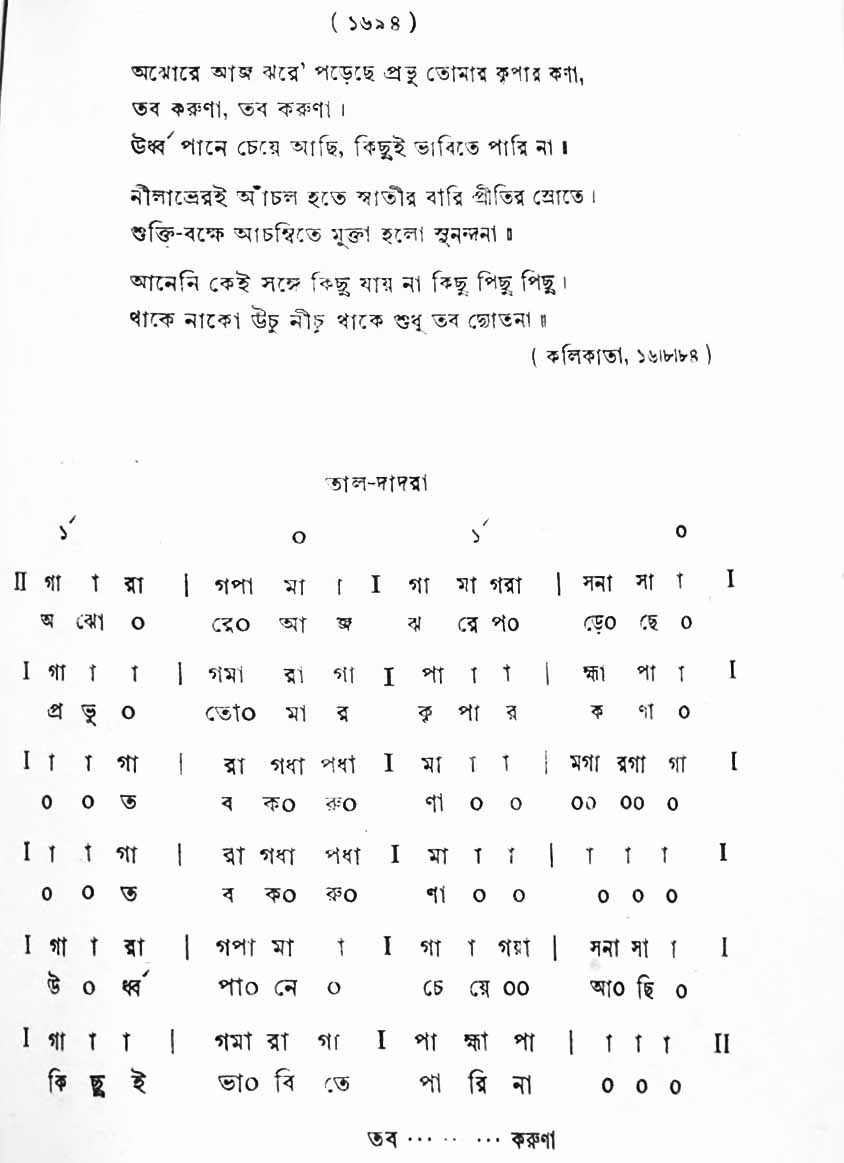 ( ১৬৯৪ )
অঝোরে আজ ঝরে' পড়েছে প্রভু তোমার কৃপার কণা,
তব করুণা, তব করুণা ।
ঊর্ধ্ব পানে চেয়ে আছি, কিছুই ভাবিতে পারি না ॥
নীলাভ্রেরই আঁচল হতে স্বাতীর বারি প্রীতির স্রোতে ।
শুক্তি-বক্ষে আচম্বিতে মুক্তা হলো সুনন্দনা ॥
আনেনি কেই সঙ্গে কিছু যায় না কিছু পিছু পিছু ।
থাকে নাকো উচু নীচু থাকে শুধু তব দ্যোতনা ॥
( কলিকাতা, ১৬৷৮৷৮৪ )
তাল-দাদরা
১´ ০ ১´ ০
II গা া রা | গপা মা া I গা মা গরা | সনা সা া I
অ ঝো ০ রে০ আ জ ঝ রে প০ ড়ে০ ছে ০
I গা া া | গমা রা গা I পা া া | হ্মা পা া I
প্র ভু ০ তো০ মা র কৃ পা র ক ণা ০
I া া গা | রা গধা পধা I মা া া | মগা রগা গা I
০ ০ ত ব ক০ রু০ ণা ০ ০ ০০ ০০ ০
I া া গা | রা গধা পধা I মা া া | া া া I
০ ০ ত ব ক০ রু০ ণা ০ ০ ০ ০ ০
I গা া রা | গপা মা া I গা া গয়া | সনা সা া I
উ ০ র্ধ্ব পা০ নে ০ চে য়ে ০০ আ০ ছি ০
I গা া া | গমা রা গা I পা হ্মা পা | া া া II
কি ছু ই ভা০ বি তে পা রি না ০ ০ ০
তব ... .. ... করুণা